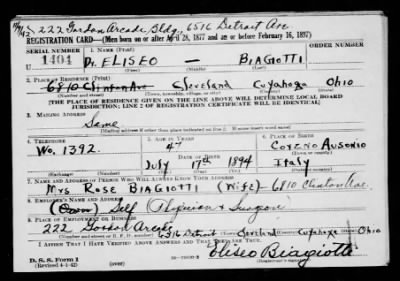 222 Gordon Arcade Bldg, 6516 Detroit Ave
REGISTRATION CARD—(Men born on or after April 28, 1877 and on or before February 16, 1897)
SERIAL NUMBER
1. NAME (Print)
ORDER NUMBER
U 1404
Dr. ELISEO — BIAGIOTTI
(First) (Middle) (Last)
2. PLACE OF RESIDENCE (Print)
6810 Clinton Ave Cleveland Cuyahoga Ohio
(Number and street) (Town, township, village, or city) (County) (State)
[THE PLACE OF RESIDENCE GIVEN ON THE LINE ABOVE WILL DETERMINE LOCAL BOARD
JURISDICTION; LINE 2 OF REGISTRATION CERTIFICATE WILL BE IDENTICAL]
3. MAILING ADDRESS
Same
[Mailing address if other than place indicated on line 2. If same insert word same]
4. TELEPHONE
5. AGE IN YEARS
6. PLACE OF BIRTH
Wo. 1392.
47
Coreno Ausonio
DATE OF BIRTH
July 17th 1894
Italy
7. NAME AND ADDRESS OF PERSON WHO WILL ALWAYS KNOW YOUR ADDRESS
Mrs ROSE BIAGIOTTI (Wife) - 6810 Clinton Ave.
8. EMPLOYER'S NAME AND ADDRESS
Self (Physician & Surgeon)
9. PLACE OF EMPLOYMENT OR BUSINESS
222 Gordon Arcade 6516 Detroit Cleveland Cuyahoga Ohio
I AFFIRM THAT I HAVE VERIFIED ABOVE ANSWERS AND THAT THEY ARE TRUE.
D. S. S. Form 1
(Revised 4-1-42)
(over)
Eliseo Biagiotti